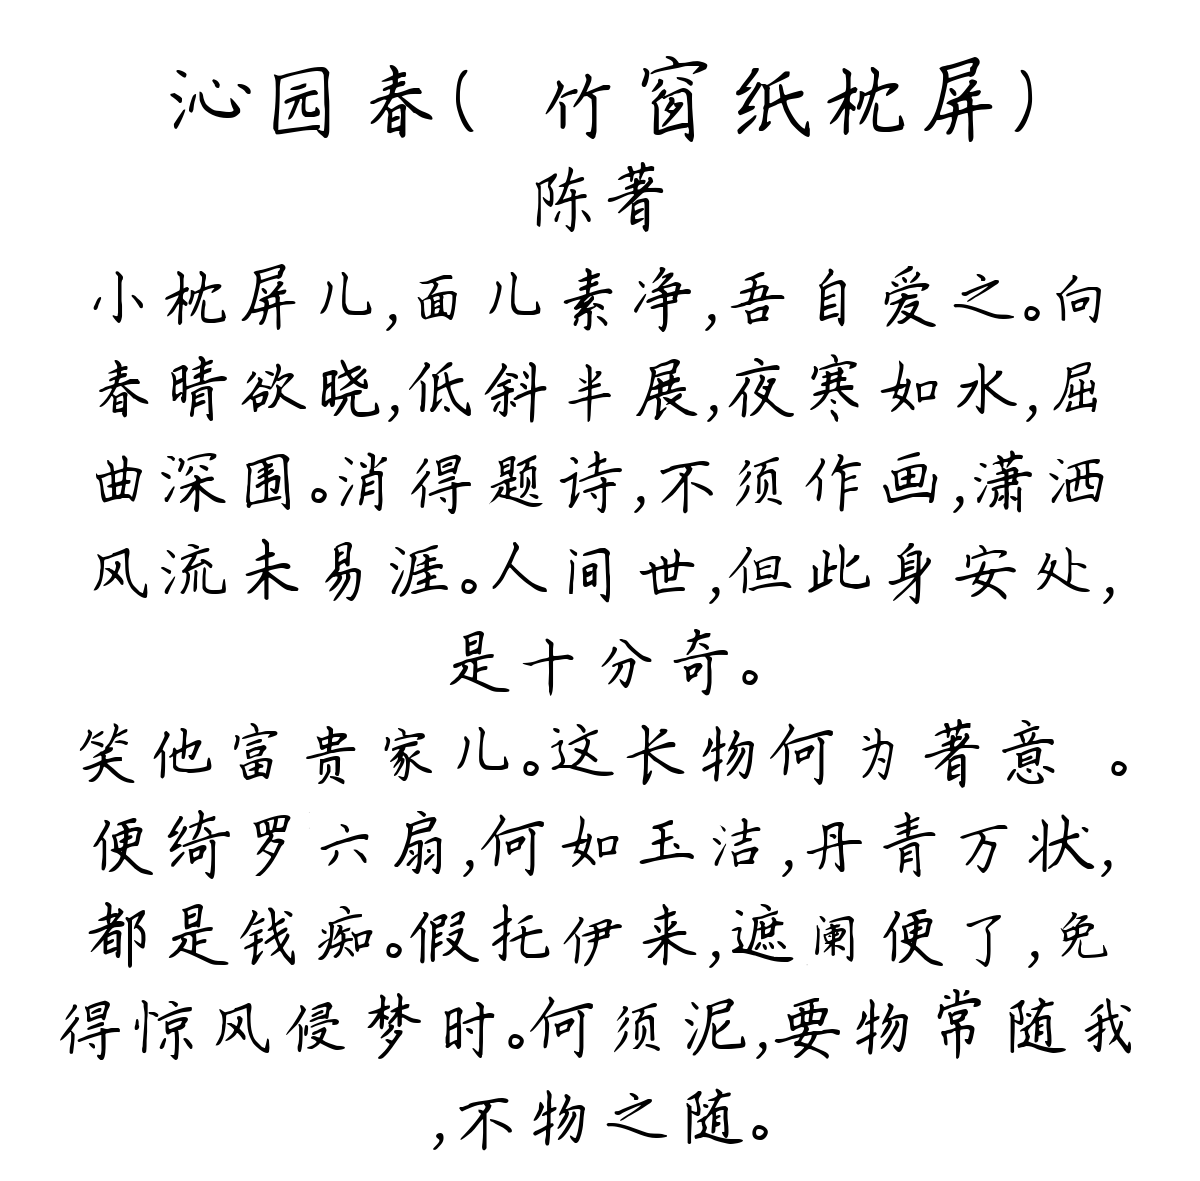 沁园春(竹窗纸枕屏)
陈著
小枕屏儿,面儿素净,吾自爱之。向
春晴欲晓,低斜半展,夜寒如水,屈
曲深围。消得题诗,不须作画,潇洒
风流未易涯。人间世,但此身安处,
是十分奇。
笑他富贵家儿。这长物何为著意。
便绮罗六扇,何如玉洁,丹青万状,
都是钱痴。假托伊来,遮阑便了,免
得惊风侵梦时。何须泥,要物常随我
,不物之随。